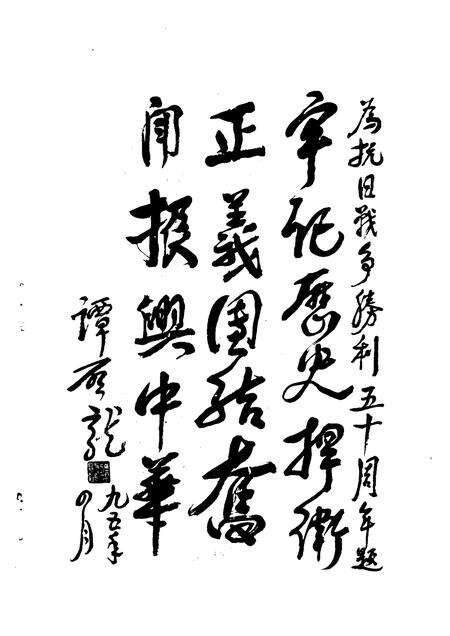 為抗日戰争勝利五十周年題
牢記歷史捍衛
正義團結奮
鬥振興中華
譚啓龍
九五年
四月